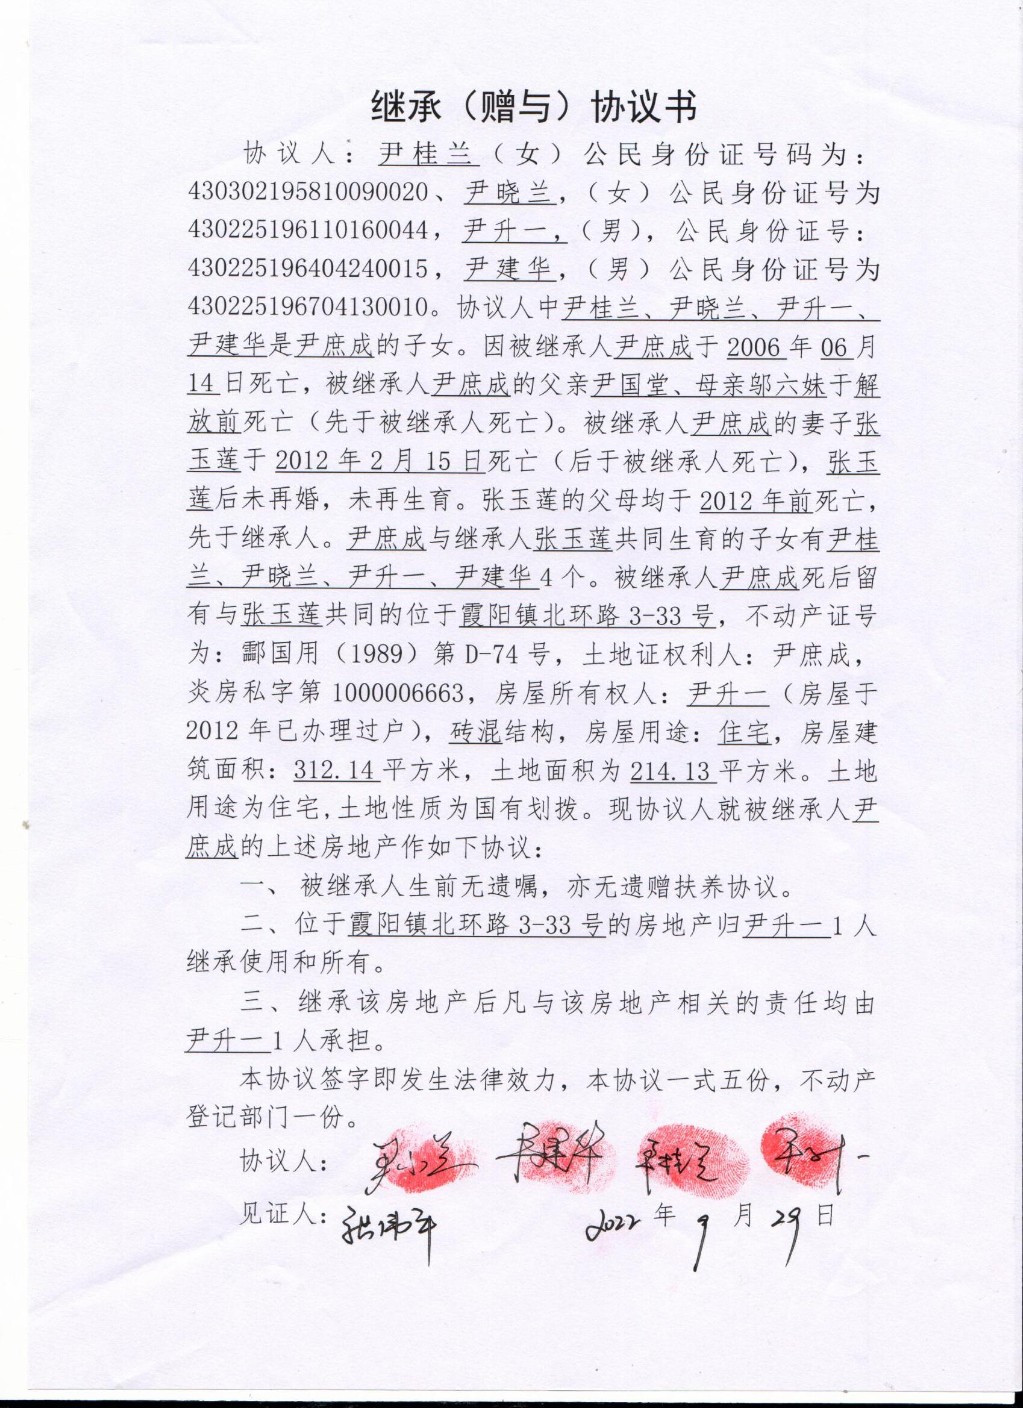 继承（赠与）协议书
协议人：尹桂兰（女）公民身份证号码为：
430302195810090020、尹晓兰，（女）公民身份证号为
430225196110160044，尹升一，（男），公民身份证号：
430225196404240015，尹建华，（男）公民身份证号为
430225196704130010。协议人中尹桂兰、尹晓兰、尹升一、
尹建华是尹庶成的子女。因被继承人尹庶成于2006年06月
14日死亡，被继承人尹庶成的父亲尹国堂、母亲邬六妹于解
放前死亡（先于被继承人死亡）。被继承人尹庶成的妻子张
玉莲于2012年2月15日死亡（后于被继承人死亡），张玉
莲后未再婚，未再生育。张玉莲的父母均于2012年前死亡，
先于继承人。尹庶成与继承人张玉莲共同生育的子女有尹桂
兰、尹晓兰、尹升一、尹建华4个。被继承人尹庶成死后留
有与张玉莲共同的位于霞阳镇北环路3-33号，不动产证号
为：酃国用（1989）第D-74号，土地证权利人：尹庶成，
炎房私字第1000006663，房屋所有权人：尹升一（房屋于
2012年已办理过户），砖混结构，房屋用途：住宅，房屋建
筑面积：312.14平方米，土地面积为214.13平方米。土地
用途为住宅,土地性质为国有划拨。现协议人就被继承人尹
庶成的上述房地产作如下协议：
一、 被继承人生前无遗嘱，亦无遗赠扶养协议。
二、位于霞阳镇北环路3-33号的房地产归尹升一1人
继承使用和所有。
三、继承该房地产后凡与该房地产相关的责任均由
尹升一1人承担。
本协议签字即发生法律效力，本协议一式五份，不动产
登记部门一份。
协议人：尹小兰 尹建华 尹桂兰 尹升一
见证人： 2022年9月29日